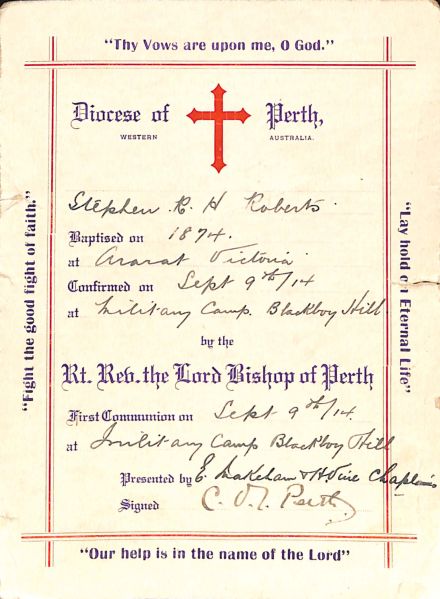 "Thy Vows are upon me, O God."
Diocese of Perth,
WESTERN AUSTRALIA.
Stephen R. H Roberts
Baptised on 1874.
at Ararat Victoria
Confirmed on Sept 9th/14
at Military Camp. Blackboy Hill
by the
Rt. Rev. the Lord Bishop of Perth
First Communion on Sept 9th/14.
at Military Camp Blackboy Hill
Presented by E. Makeham & Chaplains
Signed C. O. L. Perth.
"Fight the good fight of faith."
"Lay hold on Eternal Life"
"Our help is in the name of the Lord"